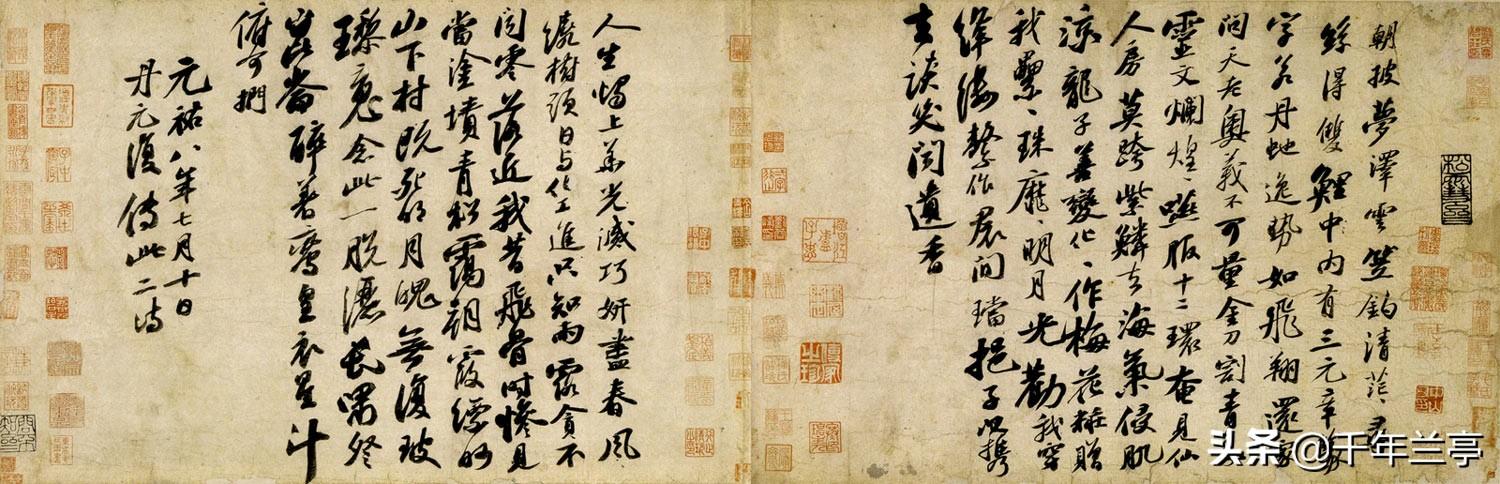 朝披夢澤雲笠釣清茫〻尋
絲得雙鯉中內有三元章篆
字若丹蛇逸勢如飛翔還家
問天老奧義不可量金刀割青
靈文爛煌〻嚥服十二環奄見仙
人房莫跨紫鱗去海氣侵肌
涼龍子善變化〻作梅花粧贈
我纍〻珠靡〻明月光勸我穿
絳縷繫作裙間璫挹子以攜
去談笑聞遺香
人生燭上華光滅巧妍盡春風
繞樹頭日与化工進只知雨露貪不
聞零落近我昔飛骨時慘見
當塗墳青松靄朝霞縹緲
山下村既死明月魄無復玻
瓈魂念此一脫灑長嘯祭
崑崙醉著鸞皇衣星斗
俯可捫
元祐八年七月十日
丹元復傳此二詩
头条@千年兰亭